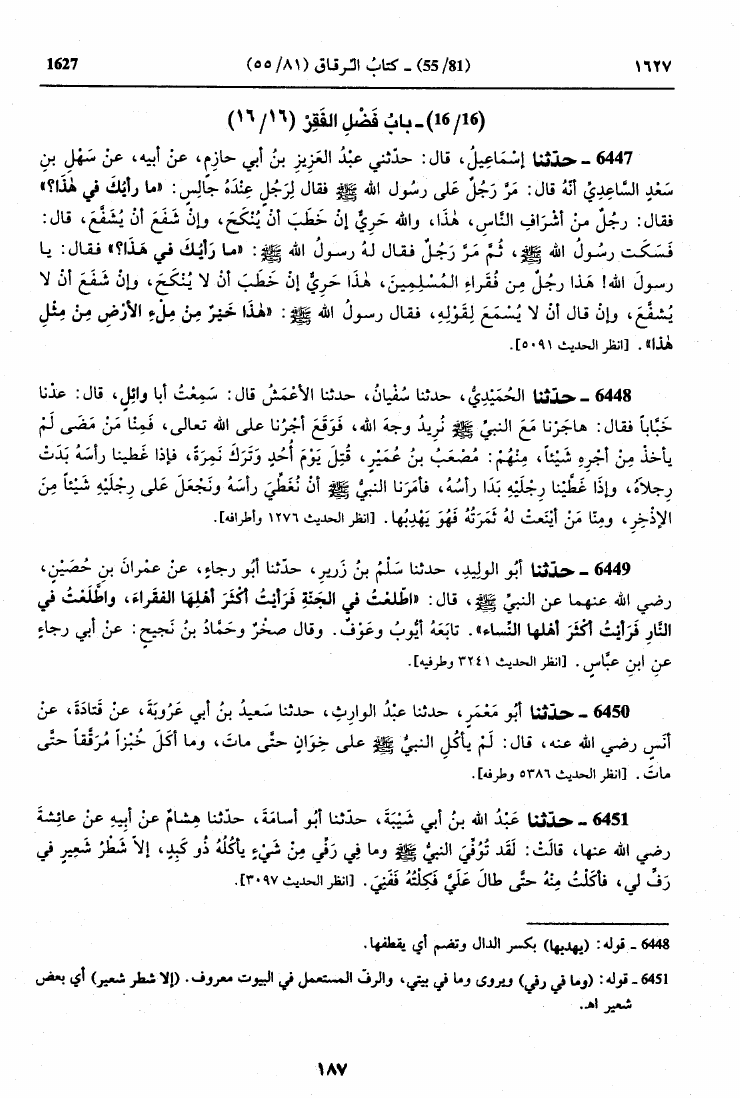 ١٦٢٧ (55/81) ـ كتابُ الـرقـاق (٥٥/٨١) 1627
(16/16) ـ بابُ فَضْلِ الفَقْرِ (١٦/١٦)
6447 ـ حدّثنا إسْمَاعِيلُ، قال: حدّثني عبْدُ العَزِيزِ بنُ أبي حازِمٍ، عنْ أبيه، عنْ سَهْلِ بنِ
سَعْدٍ السَّاعِدِيِّ أنَّهُ قال: مَرَّ رَجُلٌ عَلى رسُولِ الله ﷺ فقال لِرَجُلٍ عِنْدَهُ جالِسٍ: «ما رأيُكَ في هَذَا؟»
فقال: رجُلٌ منْ أشْرَافِ النَّاسِ، هٰذا، والله حَرِيٌّ إنْ خَطَبَ أنْ يُنْكَحَ، وإنْ شَفَعَ أنْ يُشَفَّعَ، قال:
فَسَكَت رسُولُ الله ﷺ، ثُمَّ مَرَّ رَجُلٌ فـقـال لـهُ رسـولُ الله ﷺ: «مـا رَأيُـكَ في هَـذَا؟» فـقـال: يـا
رسولَ الله! هَذا رجُلٌ مِن فُقَراءِ المُسْلِمِينَ، هٰذا حَرِيٌّ إنْ خَطَبَ أنْ لا يُنْكَحَ، وإنْ شَفَعَ أنْ لا
يُشَفَّعَ، وإنْ قال أنْ لا يُسْمَعَ لِقَوْلِهِ، فقال رسولُ الله ﷺ: «هٰذَا خَيْرٌ مِنْ مِلْءِ الأرْضِ مِنْ مِثْلِ
هٰذا». [انظر الحديث ٥٠٩١].
6448 ـ حدّثنا الحُمَيْدِيُّ، حدثنا سُفْيانُ، حدثنا الأعْمَشُ قال: سَمِعْتُ أبا وائِلٍ، قال: عدْنا
خَبَّاباً فقال: هاجَرْنا مَعَ النبيِّ ﷺ نُرِيدُ وجهَ الله، فَوَقَعَ أجْرُنا على الله تعالى، فَمِنَّا مَنْ مَضَى لَمْ
يأخذْ مِنْ أجْرِهِ شَيْئاً، مِنْهُمْ: مُصْعَبُ بنُ عُمَيْرٍ، قُتِلَ يَوْمَ أُحُدٍ وَتَرَكَ نَمِرَةً، فإذا غَطينا رأسَهُ بَدَتْ
رجلاَهُ، وإذَا غَطَّيْنا رِجْلَيْهِ بَدَا رأسُهُ، فأمَرَنا النبيُّ ﷺ أنْ نُغَطِّيَ رأسَهُ ونَجْعَلَ على رِجْلَيْهِ شَيْئاً مِنَ
الإذْخِرِ، ومِنَّا مَنْ أيْنَعتْ لهُ ثَمَرَتُهُ فَهْوَ يَهْدِبُها. [انظر الحديث ١٢٧٦ وأطرافه].
6449 ـ حدّثنا أبُو الولِيدِ، حدثنا سَلْمُ بنُ زَرِيرٍ، حدّثنا أبُو رجاءٍ، عنْ عمْرانَ بنِ حُصَيْنٍ،
رضي الله عنهما عن النبيِّ ﷺ، قال: «اطّلعْتُ في الجَنَّةِ فَرَأيْتُ أكْثَرَ أهْلِهَا الفقرَاءَ، واطَّلَعْتُ في
النَّارِ فَرَأيْتُ أكْثَرَ أهْلها النِّساء». تابَعَهُ أيُّوبُ وعَوْفٌ. وقال صخْرٌ وحَمَّادُ بنُ نَجيحٍ: عنْ أبي رجاءٍ
عنِ ابنِ عبَّاسٍ. [انظر الحديث ٣٢٤١ وطرفيه].
6450 ـ حدّثنا أبُو مَعْمَرٍ، حدثنا عبْدُ الوارِثِ، حدثنا سَعيدُ بنُ أبي عَرُوبَةَ، عنْ قَتادَةَ، عنْ
أنَسٍ رضي الله عنه، قال: لَمْ يأكُلِ النبيُّ ﷺ على خِوَانٍ حتَّى ماتَ، وما أكَلَ خُبْزاً مُرَقَّقاً حتَّى
ماتَ. [انظر الحديث ٥٣٨٦ وطرفه].
6451 ـ حدّثنا عَبْدُ الله بنُ أبي شَيْبَةَ، حدّثنا أبُو أسامَةَ، حدّثنا هِشامٌ عنْ أبِيهِ عنْ عائِشةَ
رضي الله عنها، قالَتْ: لَقَد تُوُفِّيَ النبيُّ ﷺ وما في رَفِّي مِنْ شَيْءٍ يأكُلُهُ ذُو كَبِدٍ، إلاَّ شَطْرُ شَعِيرٍ في
رَفٍّ لي، فأكَلْتُ مِنْهُ حتَّى طالَ عَلَيَّ فَكِلْتُهُ فَفَنِيَ. [انظر الحديث ٣٠٩٧].
6448 ـ قوله: (يهدبها) بكسر الدال وتضم أي يقطفها.
6451 ـ قوله: (وما في رفي) ويروى وما في بيتي، والرفّ المستعمل في البيوت معروف. (إلا شطر شعير) أي بعض
شعير اهـ.
١٨٧